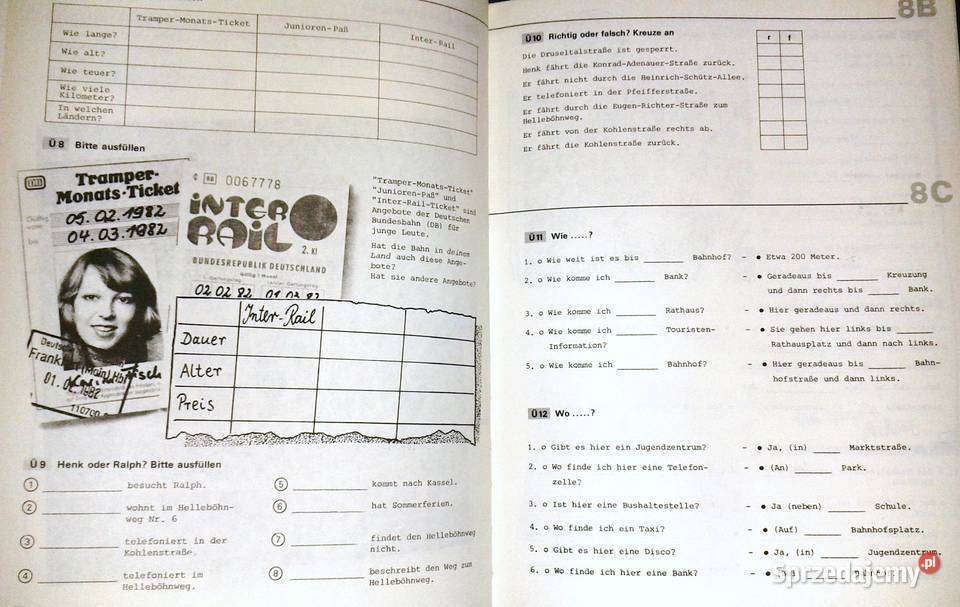 Tramper-Monats-Ticket Junioren-Paß Inter-Rail
Wie lange?
Wie alt?
Wie teuer?
Wie viele
Kilometer?
In welchen
Ländern?
Ü8 Bitte ausfüllen
DB
Tramper-
Monats-Ticket
05.02.1982
04.03.1982
Frankf (Main) Hbf
01.02.1982
DB 0067778
INTER
RAIL
2. Kl
BUNDESREPUBLIK DEUTSCHLAND
02 02 82 01 03 82
"Tramper-Monats-Ticket"
"Junioren-Paß" und
"Inter-Rail-Ticket" sind
Angebote der Deutschen
Bundesbahn (DB) für
junge Leute.
Hat die Bahn in deinem
Land auch diese Ange-
bote?
Hat sie andere Angebote?
Inter-Rail
Dauer
Alter
Preis
Ü9 Henk oder Ralph? Bitte ausfüllen
1 besucht Ralph.
2 wohnt im Helleböhn-
weg Nr. 6
3 telefoniert in der
Kohlenstraße.
4 telefoniert im
Helleböhnweg.
5 kommt nach Kassel.
6 hat Sommerferien.
7 findet den Helleböhnweg
nicht.
8 beschreibt den Weg zum
Helleböhnweg.
8B
Ü10 Richtig oder falsch? Kreuze an
r f
Die Druseltalstraße ist gesperrt.
Henk fährt die Konrad-Adenauer-Straße zurück.
Er fährt nicht durch die Heinrich-Schütz-Allee.
Er telefoniert in der Pfeifferstraße.
Er fährt durch die Eugen-Richter-Straße zum
Helleböhnweg.
Er fährt von der Kohlenstraße rechts ab.
Er fährt die Kohlenstraße zurück.
8C
Ü11 Wie .....?
1. o Wie weit ist es bis ______ Bahnhof? - • Etwa 200 Meter.
2. o Wie komme ich ______ Bank? - • Geradeaus bis ______ Kreuzung
und dann rechts bis ______ Bank.
3. o Wie komme ich ______ Rathaus? - • Hier geradeaus und dann rechts.
4. o Wie komme ich ______ Touristen- - • Sie gehen hier links bis ______
Information? Rathausplatz und dann nach links.
5. o Wie komme ich ______ Bahnhof? - • Hier geradeaus bis ______ Bahn-
hofstraße und dann links.
Ü12 Wo .....?
1. o Gibt es hier ein Jugendzentrum? - • Ja, (in) ____ Marktstraße.
2. o Wo finde ich hier eine Telefon- - • (An) ______ Park.
zelle?
3. o Ist hier eine Bushaltestelle? - • Ja (neben) ______ Schule.
4. o Wo finde ich ein Taxi? - • (Auf) ______ Bahnhofsplatz.
5. o Gibt es hier eine Disco? - • Ja, (in) ______ Jugendzentrum.
6. o Wo finde ich hier eine Bank? - •
Sprzedajemy.pl